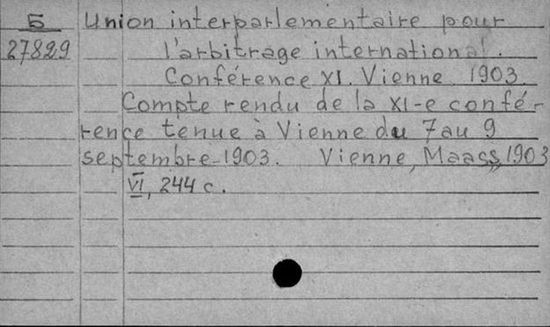 Б
27829
Union interparlementaire pour
l'arbitrage international.
Conférence XI. Vienne. 1903.
Compte rendu de la XI-e confé-
rence tenue à Vienne du 7 au 9
septembre 1903. Vienne, Maass, 1903
VI, 244 c.